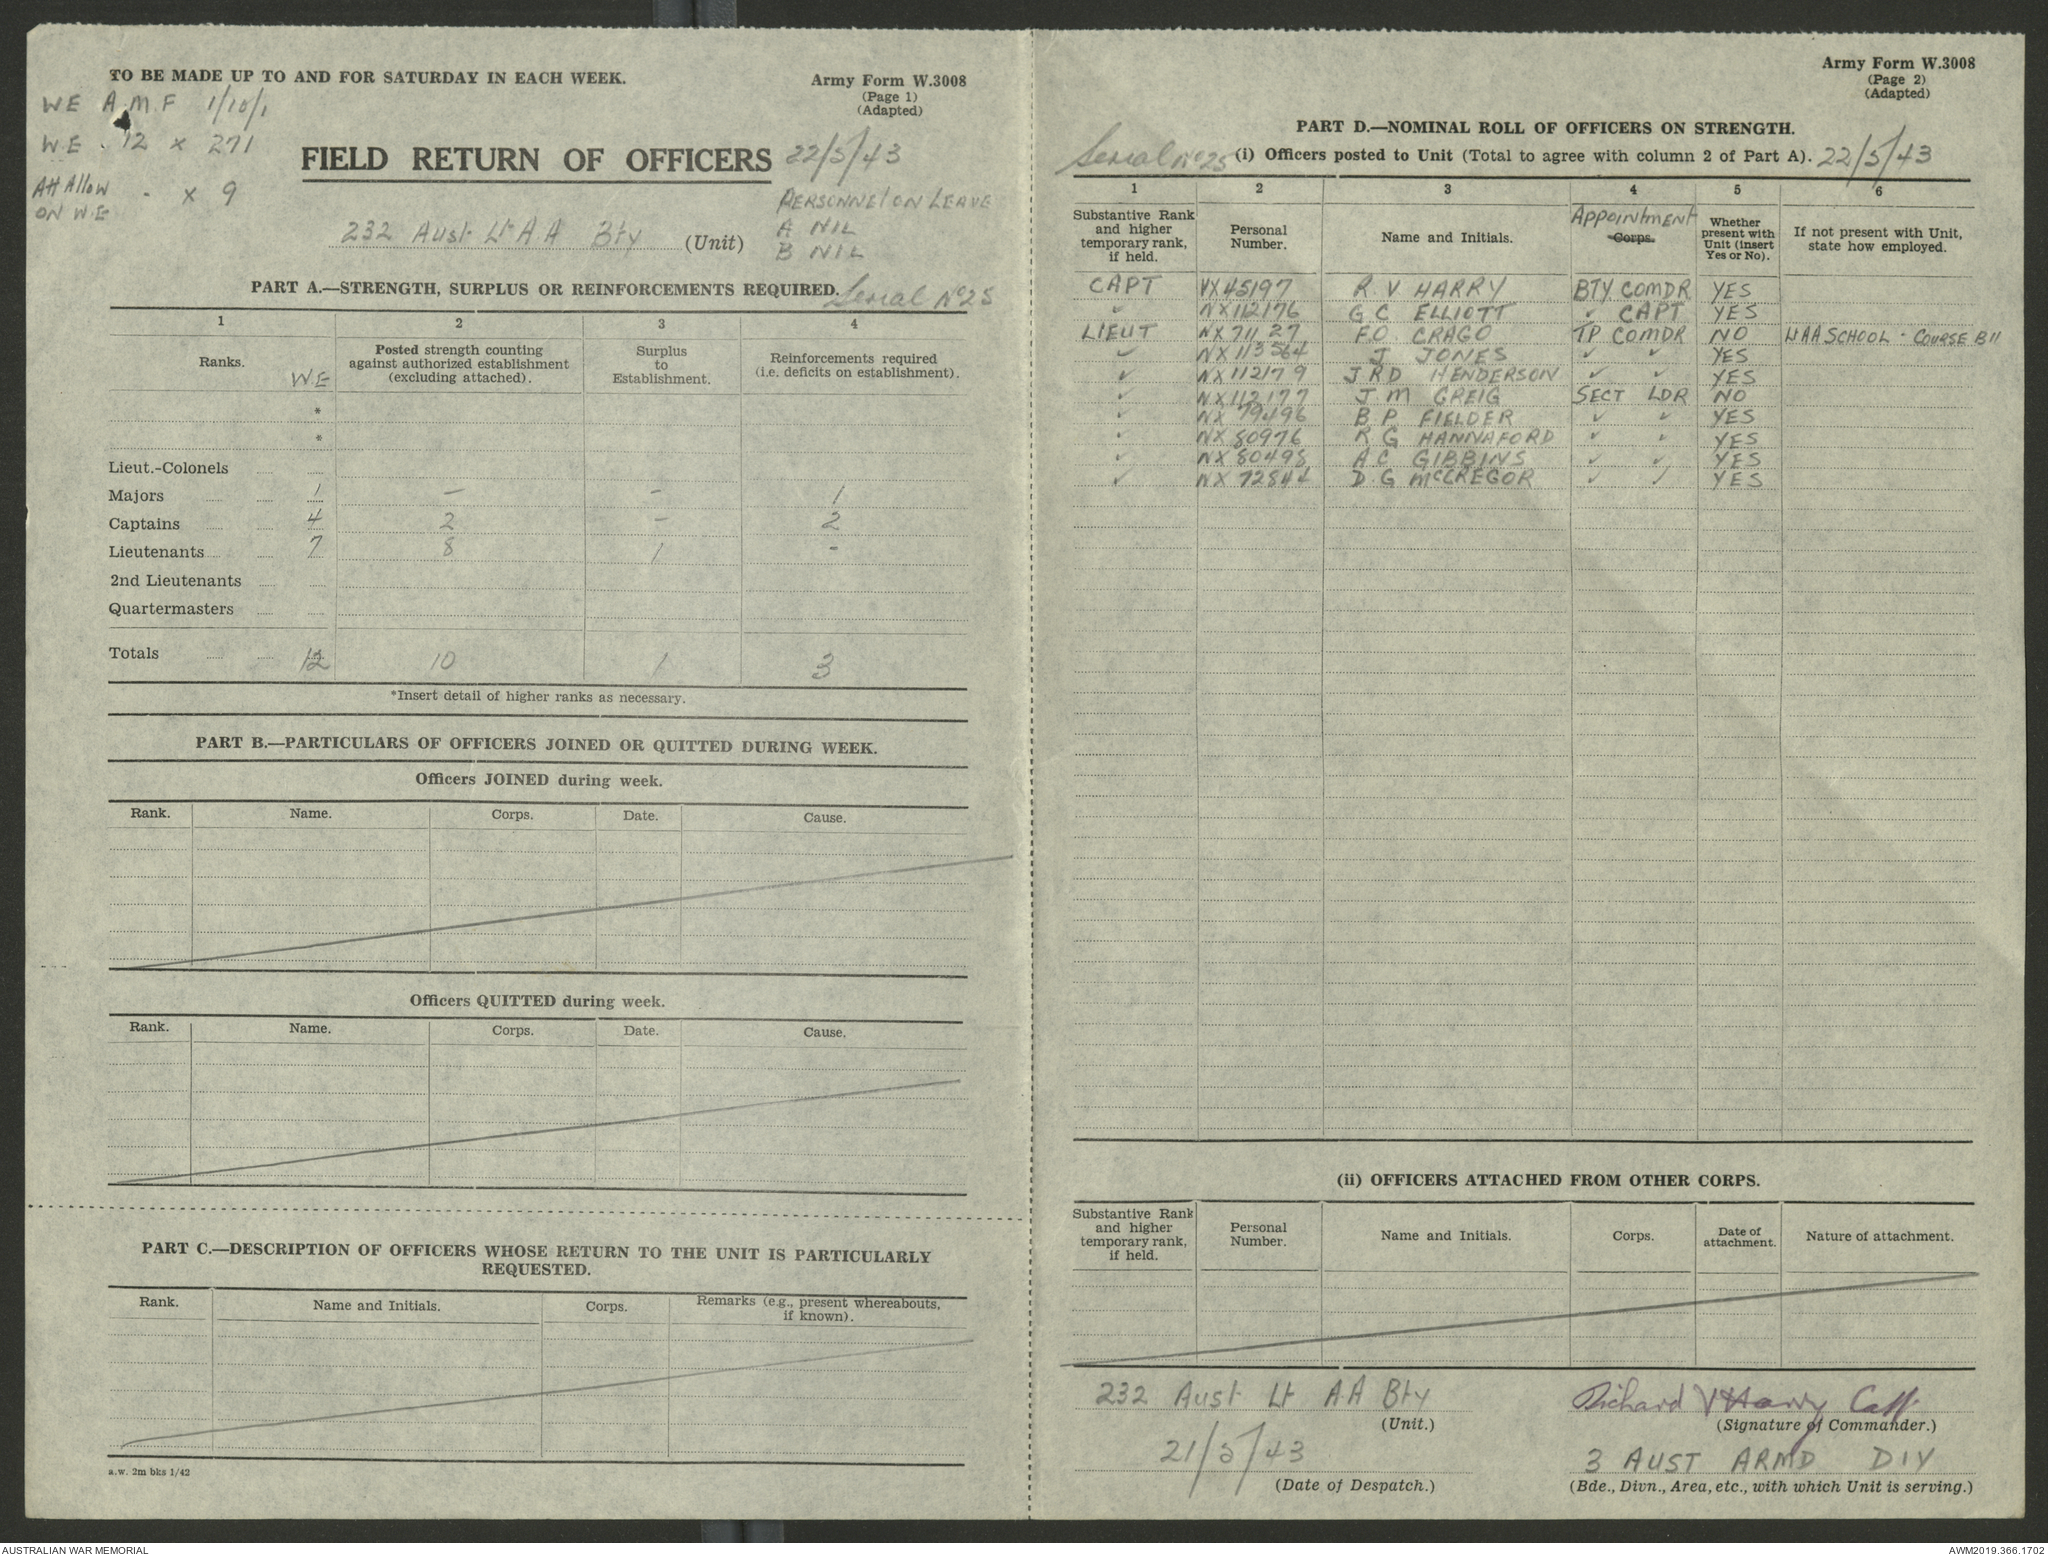 TO BE MADE UP TO AND FOR SATURDAY IN EACH WEEK.
Army Form W.3008
(Page 1)
(Adapted)
WE A.M.F 1/10/1
W.E. 12 x 271
Att Allow
ON W.E - x 9
FIELD RETURN OF OFFICERS 22/5/43
PERSONNEL ON LEAVE
A NIL
B NIL
232 Aust Lt A A Bty (Unit)
PART A.—STRENGTH, SURPLUS OR REINFORCEMENTS REQUIRED. Serial No 25
1 2 3 4
Ranks. W.E
Posted strength counting against authorized establishment (excluding attached).
Surplus to Establishment.
Reinforcements required (i.e. deficits on establishment).
*
*
Lieut.-Colonels
Majors 1 — — 1
Captains 4 2 — 2
Lieutenants 7 8 1 -
2nd Lieutenants
Quartermasters
Totals 12 10 1 3
*Insert detail of higher ranks as necessary.
PART B.—PARTICULARS OF OFFICERS JOINED OR QUITTED DURING WEEK.
Officers JOINED during week.
Rank. Name. Corps. Date. Cause.
Officers QUITTED during week.
Rank. Name. Corps. Date. Cause.
PART C.—DESCRIPTION OF OFFICERS WHOSE RETURN TO THE UNIT IS PARTICULARLY
REQUESTED.
Rank. Name and Initials. Corps. Remarks (e.g., present whereabouts, if known).
a.w. 2m bks 1/42
Army Form W.3008
(Page 2)
(Adapted)
PART D.—NOMINAL ROLL OF OFFICERS ON STRENGTH.
Serial No 25 (i) Officers posted to Unit (Total to agree with column 2 of Part A). 22/5/43
1 2 3 4 5 6
Substantive Rank and higher temporary rank, if held.
Personal Number.
Name and Initials.
Appointment
Corps.
Whether present with Unit (insert Yes or No).
If not present with Unit, state how employed.
CAPT VX45197 R V HARRY BTY COMDR YES
✓ NX112176 G C ELLIOTT ✓ CAPT YES
LIEUT NX71127 F.O. CRAGO TP COMDR NO LtAA SCHOOL - COURSE B11
✓ NX113564 J JONES ✓ ✓ YES
✓ NX112179 J R D HENDERSON ✓ ✓ YES
✓ NX112177 J M GREIG SECT LDR NO
✓ NX 79496 B P FIELDER ✓ ✓ YES
✓ NX 80976 R G HANNAFORD ✓ ✓ YES
✓ NX 80498 A C GIBBINS ✓ ✓ YES
✓ NX 72844 D.G McGREGOR ✓ ✓ YES
(ii) OFFICERS ATTACHED FROM OTHER CORPS.
Substantive Rank and higher temporary rank, if held.
Personal Number.
Name and Initials.
Corps.
Date of attachment.
Nature of attachment.
232 Aust Lt AA Bty
(Unit.)
Richard V Harry Capt.
(Signature of Commander.)
21/5/43
(Date of Despatch.)
3 AUST ARMD DIV
(Bde., Divn., Area, etc., with which Unit is serving.)
AUSTRALIAN WAR MEMORIAL
AWM2019.366.1702